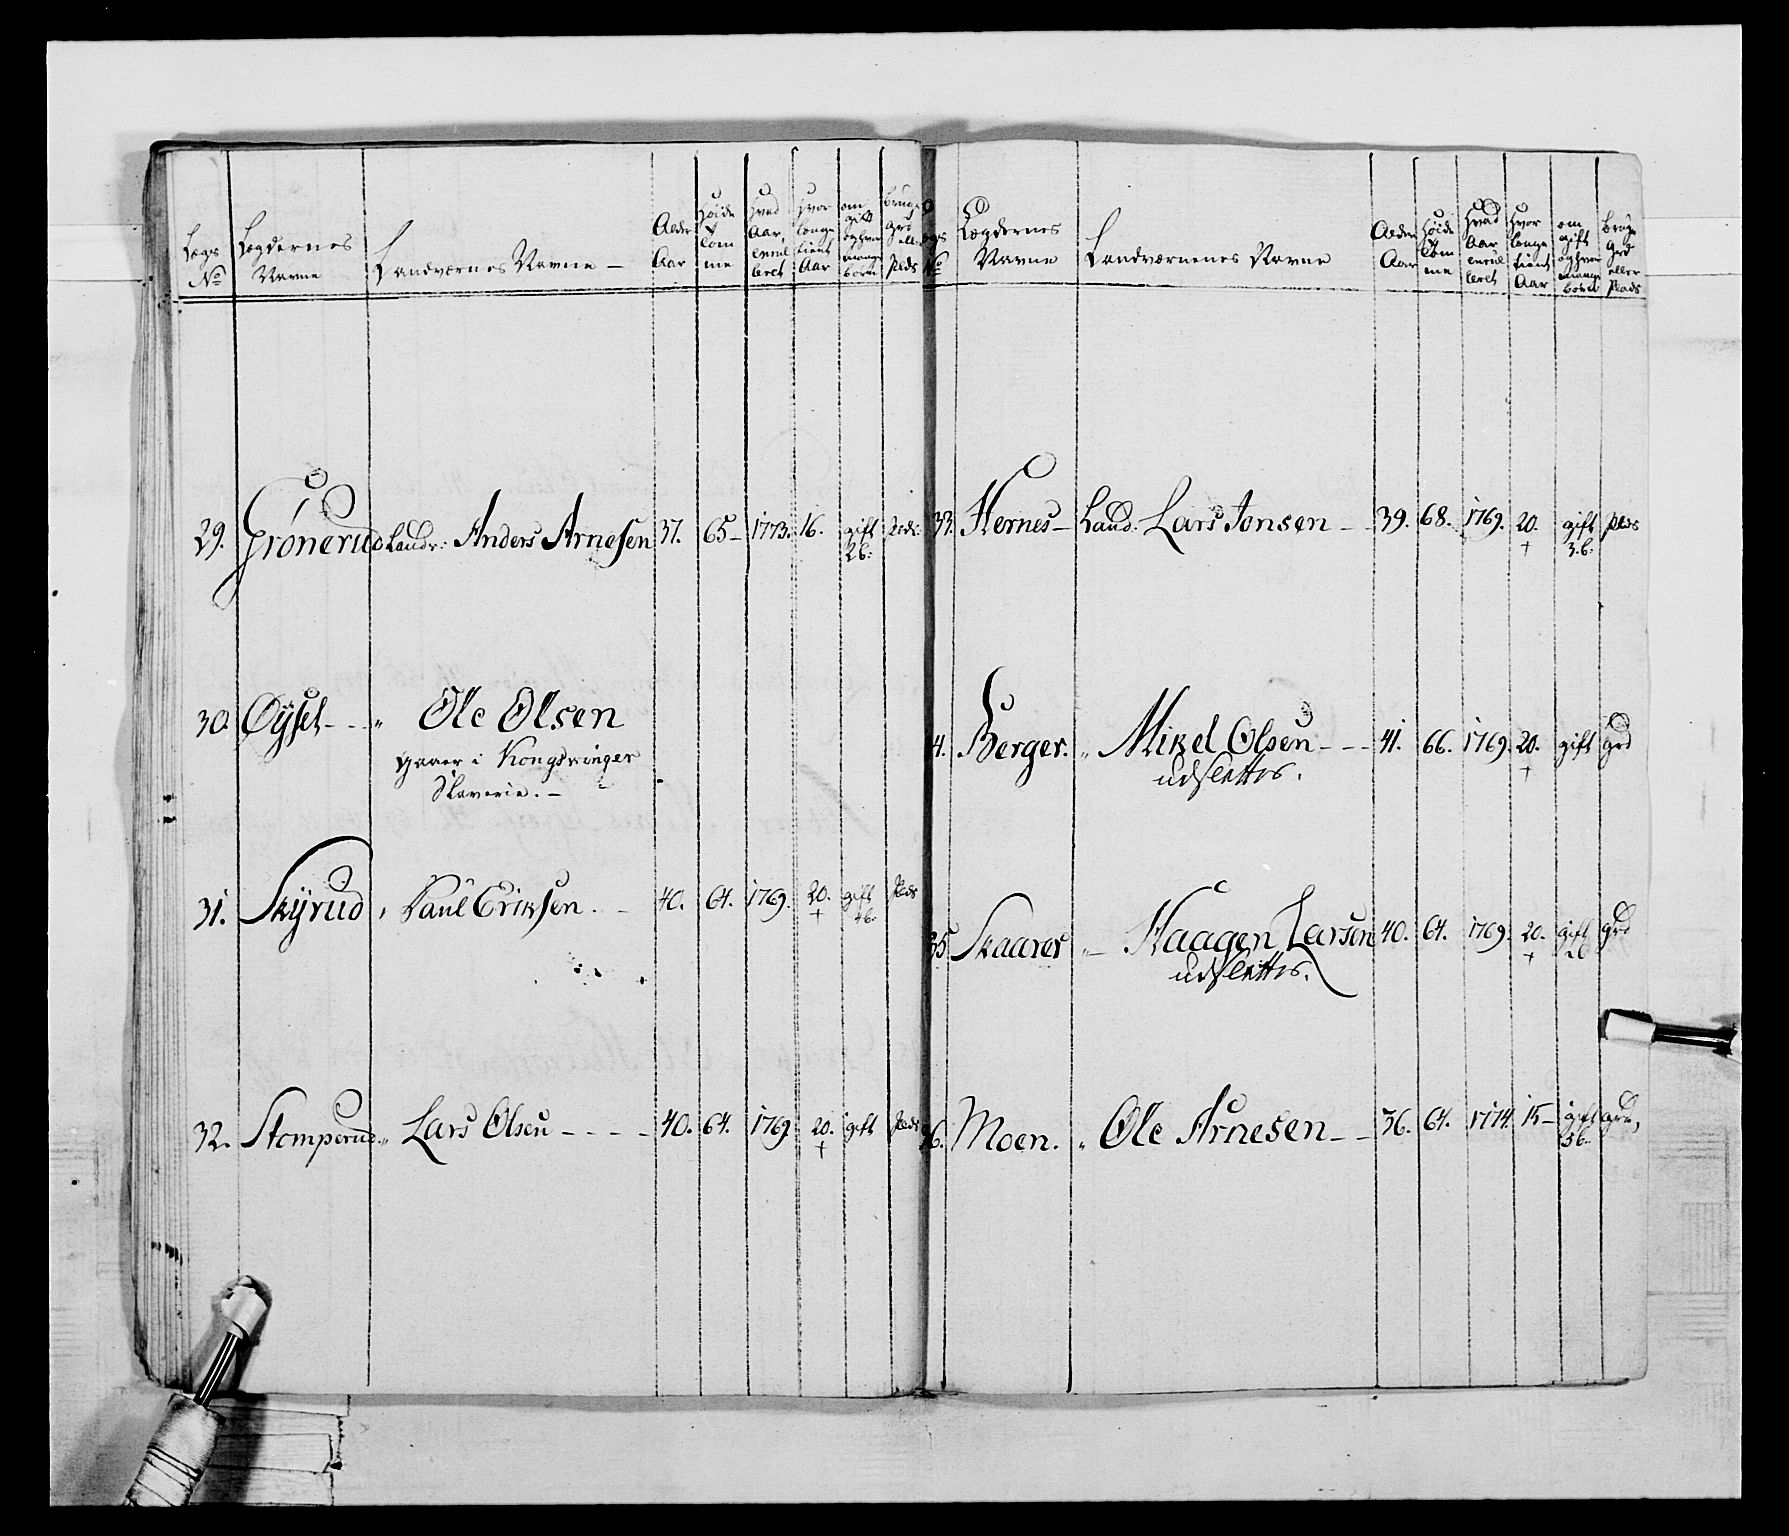 Lægs No | Lægdernes Navne | Landværnes Navne – | Alder Aar | Høide Tomme | Hvad Aar enrulleret | Hvor længe tient Aar | om gift og hvor mange börn | bruger grd eller Plads
29. Grönerud Landv: Anders Arnesen 37. 65– 1773. 16. gift Plads
2 b:
30. Øÿset – – „ Ole Olsen
gaaer i Kongswinger
Slaverie. –
31. Skÿrud „ Paul Eriksen. – 40. 64. 1769. 20. gift Plads
† 4 b.
32. Stomperud „ Lars Olsen – – – – 40. 64. 1769. 20. gift Plads
†
Lægs No | Lægdernes Navne | Landværnenes Navne | Alder Aar | Høide Tomme | Hvad Aar enrulleret | Hvor længe tient Aar | om gift og hvor mange börn | bruger Grd eller Plads
33. Hernes – Land: Lars Jonsen – – 39. 68. 1769. 20. gift Plads
† 3. b.
4. Berger. „ Mikel Olsen – – – 41. 66. 1769. 20. gift grd
udslettes. †
35. Skaarer „ – Haagen Larsen 40. 64. 1769. 20. gift grd
udslettes. † 2 b
36. Moen. „ Ole Arnesen – – 36. 64. 1774. 15 – gift grd,
3 b.